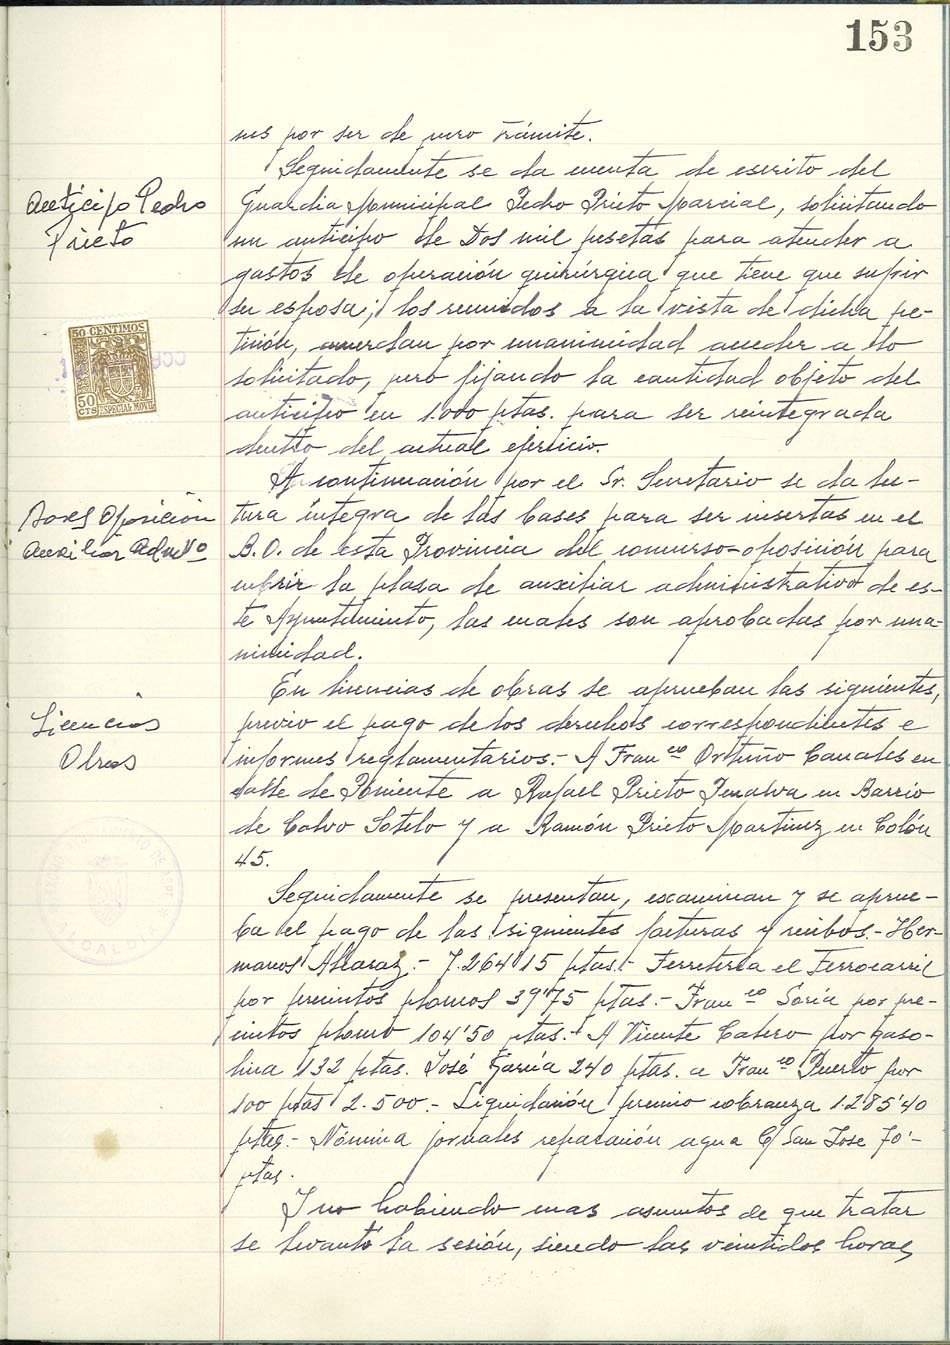 153
nes por ser de puro trámite.
Seguidamente se da cuenta de escrito del
Anticipo Pedro
Prieto
Guardia Municipal Pedro Prieto Marcial, solicitando
un anticipo de Dos mil pesetas para atender a
gastos de operación quirúrgica que tiene que sufrir
su esposa; los reunidos a la vista de dicha pe-
tición, acuerdan por unanimidad acceder a lo
solicitado, pero fijando la cantidad objeto del
anticipo en 1.000 ptas. para ser reintegrada
dentro del actual ejercicio.
50 CENTIMOS
50
CTS ESPECIAL MOVIL
A continuación por el Sr. Secretario se da lec-
Oposición
Auxiliar Admtvo
tura íntegra de las bases para ser insertas en el
B.O. de esta Provincia del concurso-oposición para
cubrir la plaza de auxiliar administrativo de es-
te Ayuntamiento, las cuales son aprobadas por una-
nimidad.
En licencias de obras se aprueban las siguientes,
Licencias
Obras
previo el pago de los derechos correspondientes e
informes reglamentarios.- A Franco Ortuño Canales en
calle de Poniente a Rafael Prieto Penalva en Barrio
de Calvo Sotelo y a Ramón Prieto Martinez en Colón
45.
ALCALDIA
Seguidamente se presentan, examinan y se aprue-
ba el pago de las siguientes facturas y recibos.- Her-
manos Alcaraz.- 7.264'15 ptas.- Ferreteria el Ferrocarril
por precintos plomos 39'75 ptas.- Franco Soria por pre-
cintos plomo 104'50 ptas.- A Vicente Castero por gaso-
lina 132 ptas. José Garcia 240 ptas. a Franco Puerto por
100 ptas 2.500.- Liquidación premio cobranza 1.285'40
ptas.- Nómina jornales reparación agua C/ San Jose 70'-
ptas.
Y no habiendo mas asuntos de que tratar
se levantó la sesión, siendo las veintidos horas